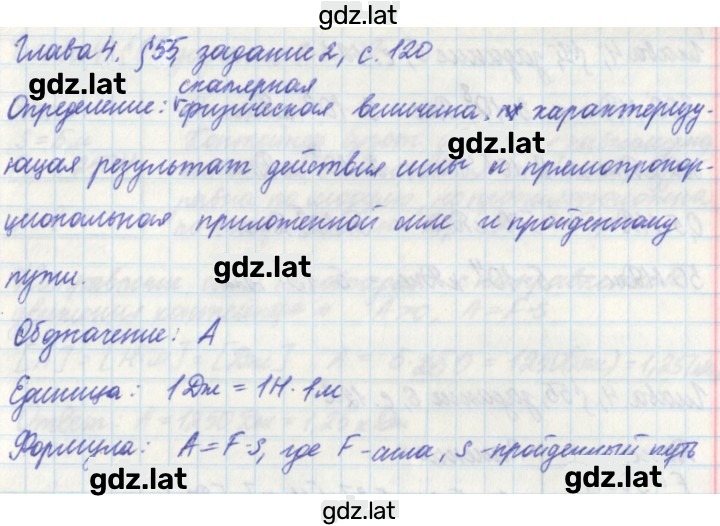 gdz.lat
Глава 4. §55, задание 2, с. 120
gdz.lat
скалярная
Определение: физическая величина, характеризу-
gdz.lat
ющая результат действия силы и прямопропор-
циональная приложенной силе и пройденному
gdz.lat
пути.
Обозначение: А
Единица: 1Дж = 1Н · 1м
Формула: A = F·s, где F - сила, s - пройденный путь
gdz.lat
gdz.lat
gdz.lat